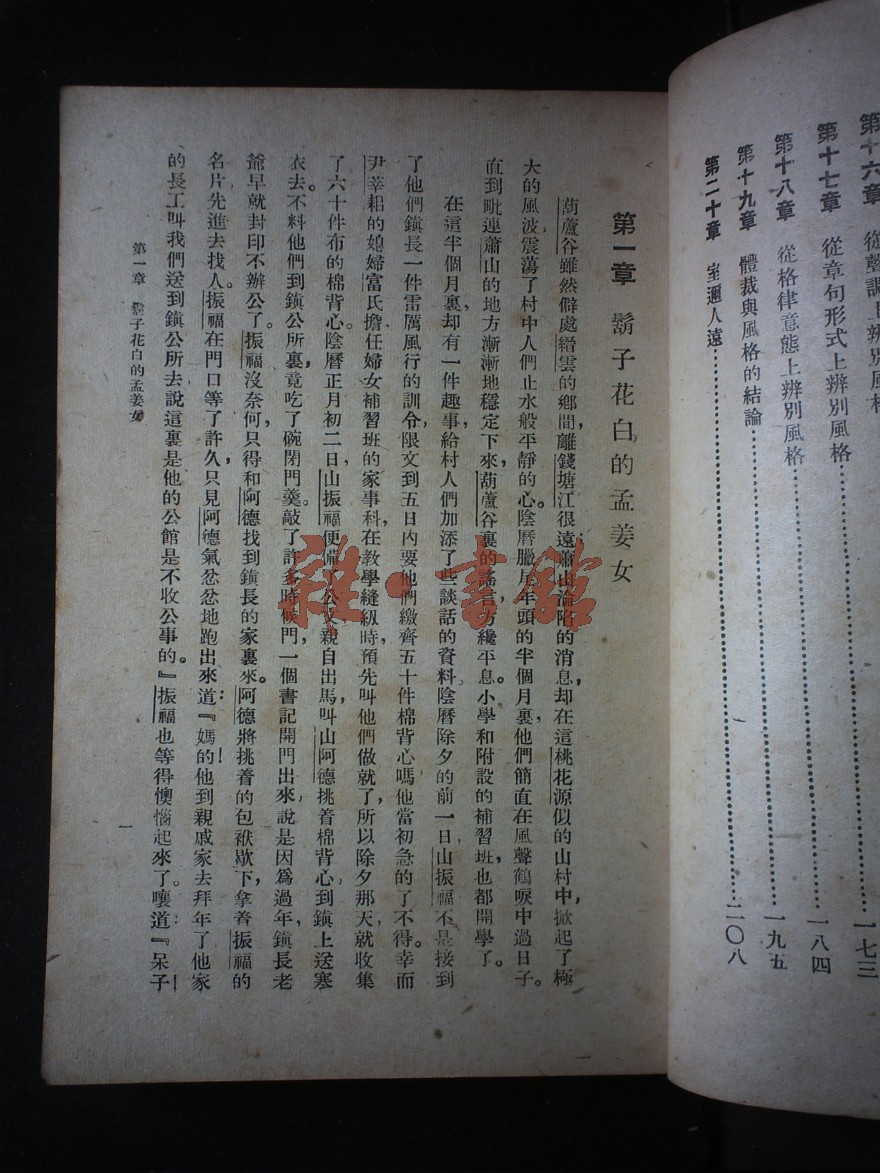 第十六章　從聲調上辨別風格
第十七章　從章句形式上辨別風格……一七三
第十八章　從格律意態上辨別風格……一八四
第十九章　體裁與風格的結論……一九五
第二十章　室邇人遠……二〇八
第一章　鬍子花白的孟姜女
葫蘆谷雖然僻處縉雲的鄉間，離錢塘江很遠，蕭山淪陷的消息，却在這桃花源似的山村中，掀起了極
大的風波，震蕩了村中人們止水般平靜的心。陰曆臘月年頭的半個月裏，他們簡直在風聲鶴唳中過日子。
直到毗連蕭山的地方漸漸地穩定下來，葫蘆谷裏的謠言，方纔平息。小學和附設的補習班，也都開學了。
在這半個月裏，却有一件趣事，給村人們加添了些談話的資料。陰曆除夕的前一日，山振福不是接到
了他們鎮長一件雷厲風行的訓令，限文到五日內要他們繳齊五十件棉背心嗎？他當初急的了不得。幸而
尹莘耜的媳婦富氏擔任婦女補習班的家事科，在教學縫紉時，預先叫他們做就了，所以除夕那天就收集
了六十件布的棉背心。陰曆正月初二日，山振福便備了公文，親自出馬，叫山阿德挑着棉背心到鎮上送寒
衣去。不料他們到鎮公所裏，竟吃了碗閉門羹。敲了許多時候門，一個書記開門出來，說是因爲過年，鎮長老
爺早就封印不辦公了。振福沒奈何，只得和阿德找到鎮長的家裏來。阿德將挑着的包袱歇下，拿着振福的
名片先進去找人。振福在門口等了許久，只見阿德氣忿忿地跑出來道：『媽的！他到親戚家去拜年了，他家
的長工叫我們送到鎮公所去，說這裏是他的公館，是不收公事的。』振福也等得懊惱起來了。嚷道：『呆子！
第一章　鬍子花白的孟姜女
一
雜·書館